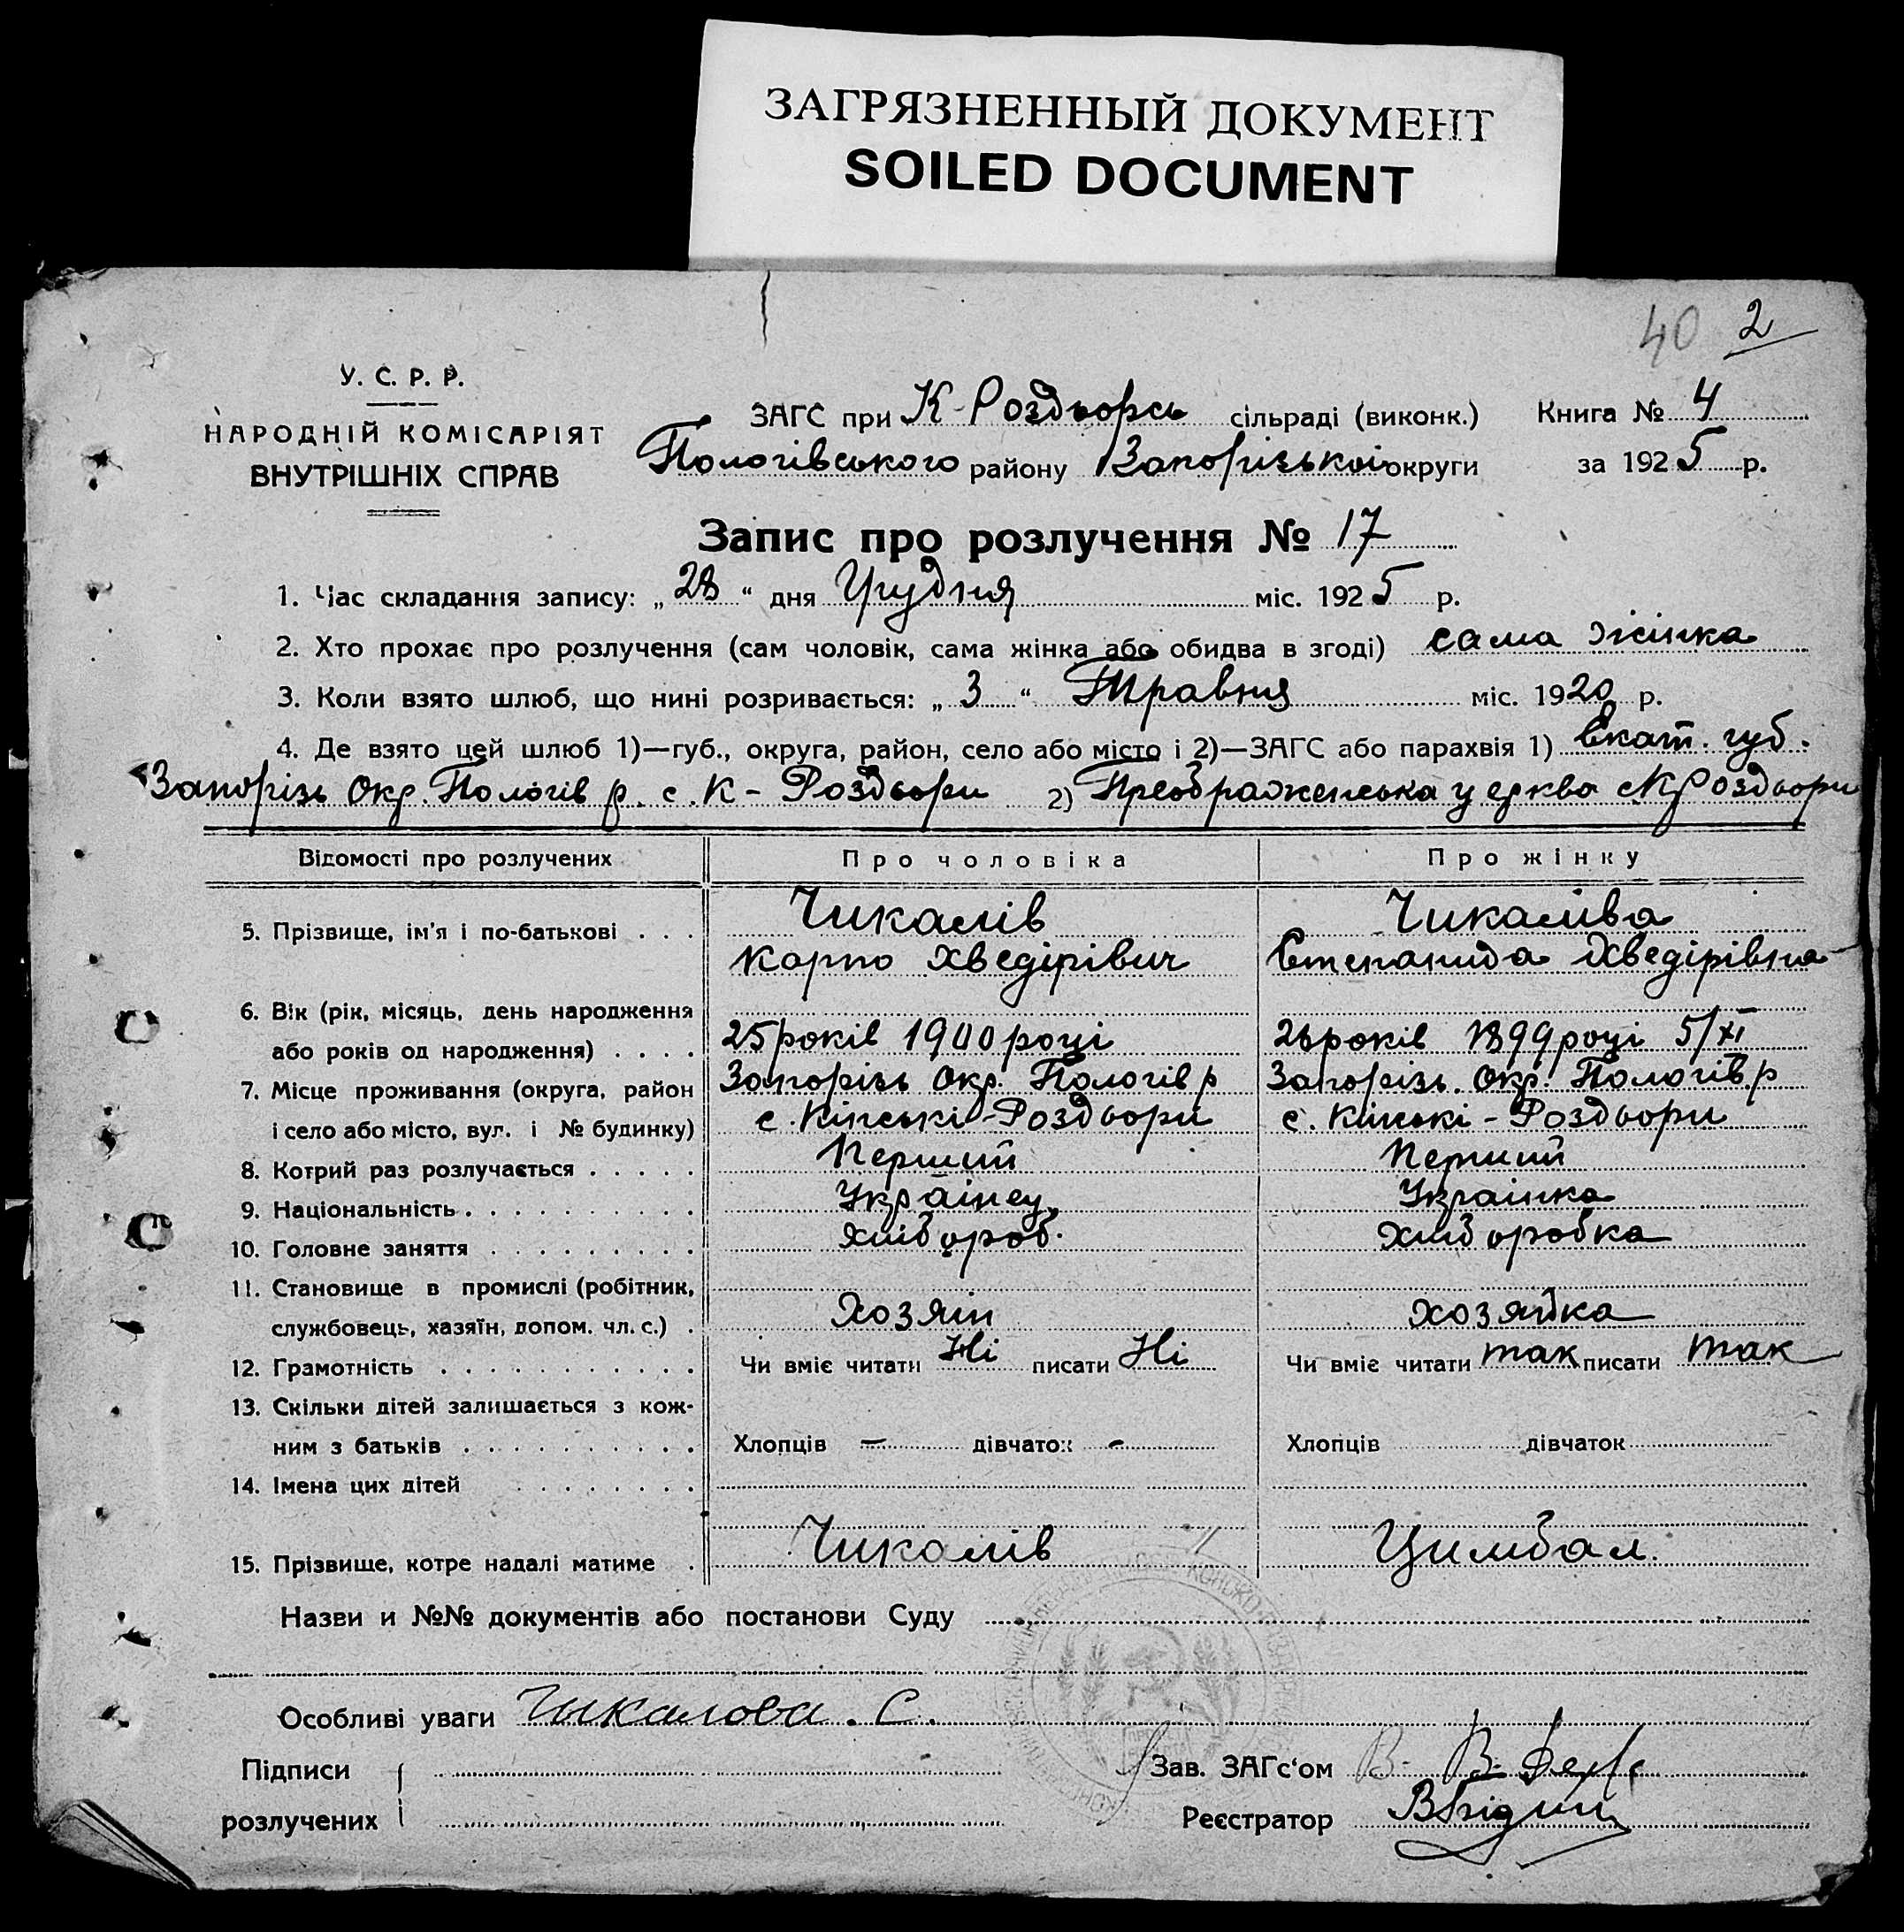 ЗАГРЯЗНЕННЫЙ ДОКУМЕНТ
SOILED DOCUMENT
40 2
У. С. Р. Р.
НАРОДНІЙ КОМІСАРІЯТ
ВНУТРІШНІХ СПРАВ
ЗАГС при К-Роздорсь сільраді (виконк.) Книга № 4
Пологівського району Запорізькоі округи за 1925 р.
Запис про розлучення № 17
1. Час складання запису: „28“ дня Грудня міс. 1925 р.
2. Хто прохає про розлучення (сам чоловік, сама жінка або обидва в згоді) сама жінка
3. Коли взято шлюб, що нині розривається: „3“ Травня міс. 1920 р.
4. Де взято цей шлюб 1)—губ., округа, район, село або місто і 2)—ЗАГС або парахвія 1) Екат. губ.
Запорізь Окр. Пологів р. с. К-Роздори 2) Преображенська церква с К Роздори
Відомості про розлучених Про чоловіка Про жінку
5. Прізвище, ім'я і по-батькові . . . Чикалів Чикаліва
Карпо Хведірівич Степанида Хведірівна
6. Вік (рік, місяць, день народження
або років од народження) . . . . 25 років 1900 році 26 років 1899 році 5/XI
7. Місце проживання (округа, район Запорізь Окр. Пологів р Запорізь. Окр. Пологів. р
і село або місто, вул. і № будинку) с. Кінські-Роздори с. Кінські-Роздори
8. Котрий раз розлучається . . . . . Перший Перший
9. Національність . . . . . . . . . . Українец Украінка
10. Головне заняття . . . . . . . . . Хлібороб. Хліборобка
11. Становище в промислі (робітник,
службовець, хазяїн, допом. чл. с.) . Хозяін хозяйка
12. Грамотність . . . . . . . . . . . Чи вміє читати Ні писати Ні Чи вміє читати так писати так
13. Скільки дітей залишається з кож-
ним з батьків . . . . . . . . . . Хлопців – дівчаток - Хлопців дівчаток
14. Імена цих дітей . . . . . . . .
15. Прізвище, котре надалі матиме . Чикалів Цимбал.
Назви и №№ документів або постанови Суду
Особливі уваги Чикалова. С.
Підписи Зав. ЗАГс'ом В. В.
розлучених Реєстратор